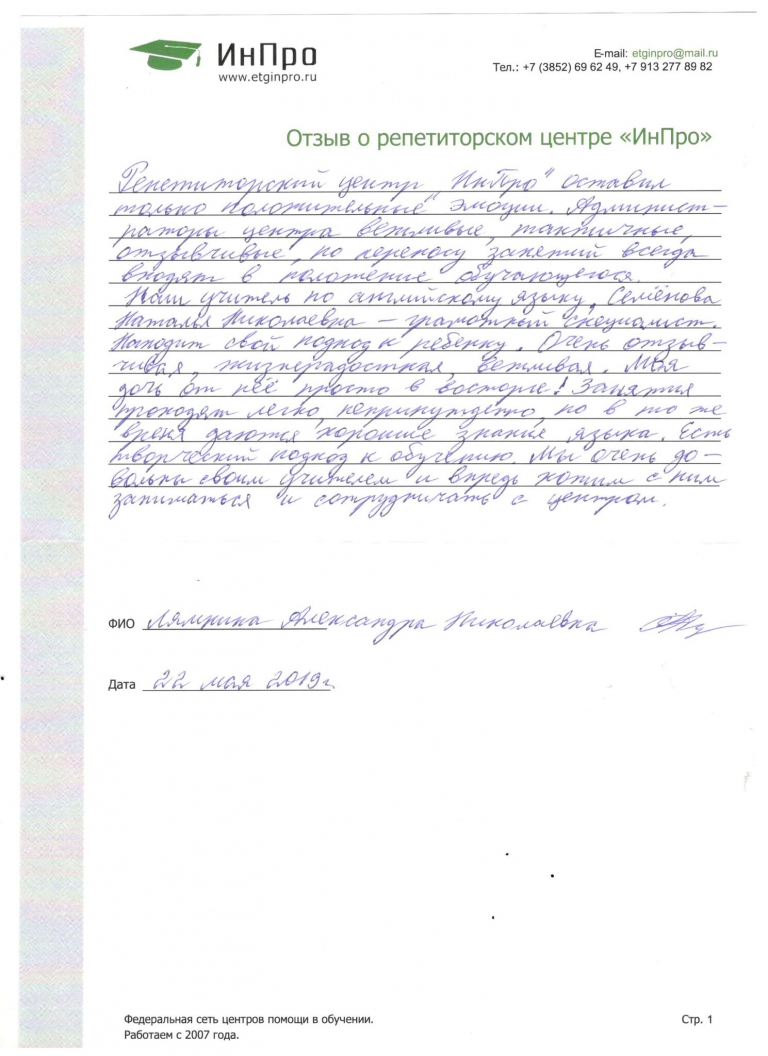 ИнПро
www.etginpro.ru
E-mail: etginpro@mail.ru
Тел.: +7 (3852) 69 62 49, +7 913 277 89 82
Отзыв о репетиторском центре «ИнПро»
Репетиторский центр „ИнПро" оставил
только положительные эмоции. Админист-
раторы центра вежливые, тактичные,
отзывчивые, по переносу занятий всегда
входят в положение обучающегося.
Наш учитель по английскому языку, Семёнова
Наталья Николаевна – грамотный специалист.
Находит свой подход к ребенку. Очень отзыв-
чивая, жизнерадостная, вежливая. Моя
дочь от неё просто в восторге! Занятия
проходят легко, непринужденно, но в то же
время даются хорошие знания языка. Есть
творческий подход к обучению. Мы очень до-
вольны своим учителем и впредь хотим с ним
заниматься и сотрудничать с центром.
ФИО Лямкина Александра Николаевна
Дата 22 мая 2019г.
Федеральная сеть центров помощи в обучении.
Работаем с 2007 года.
Стр. 1